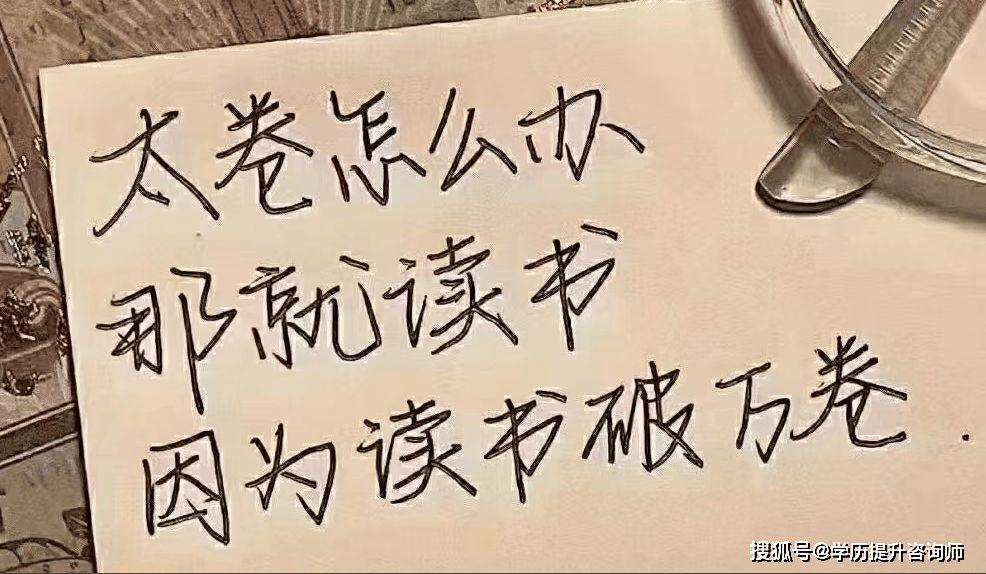 太卷怎么办
那就读书
因为读书破万卷.
搜狐号@学历提升咨询师